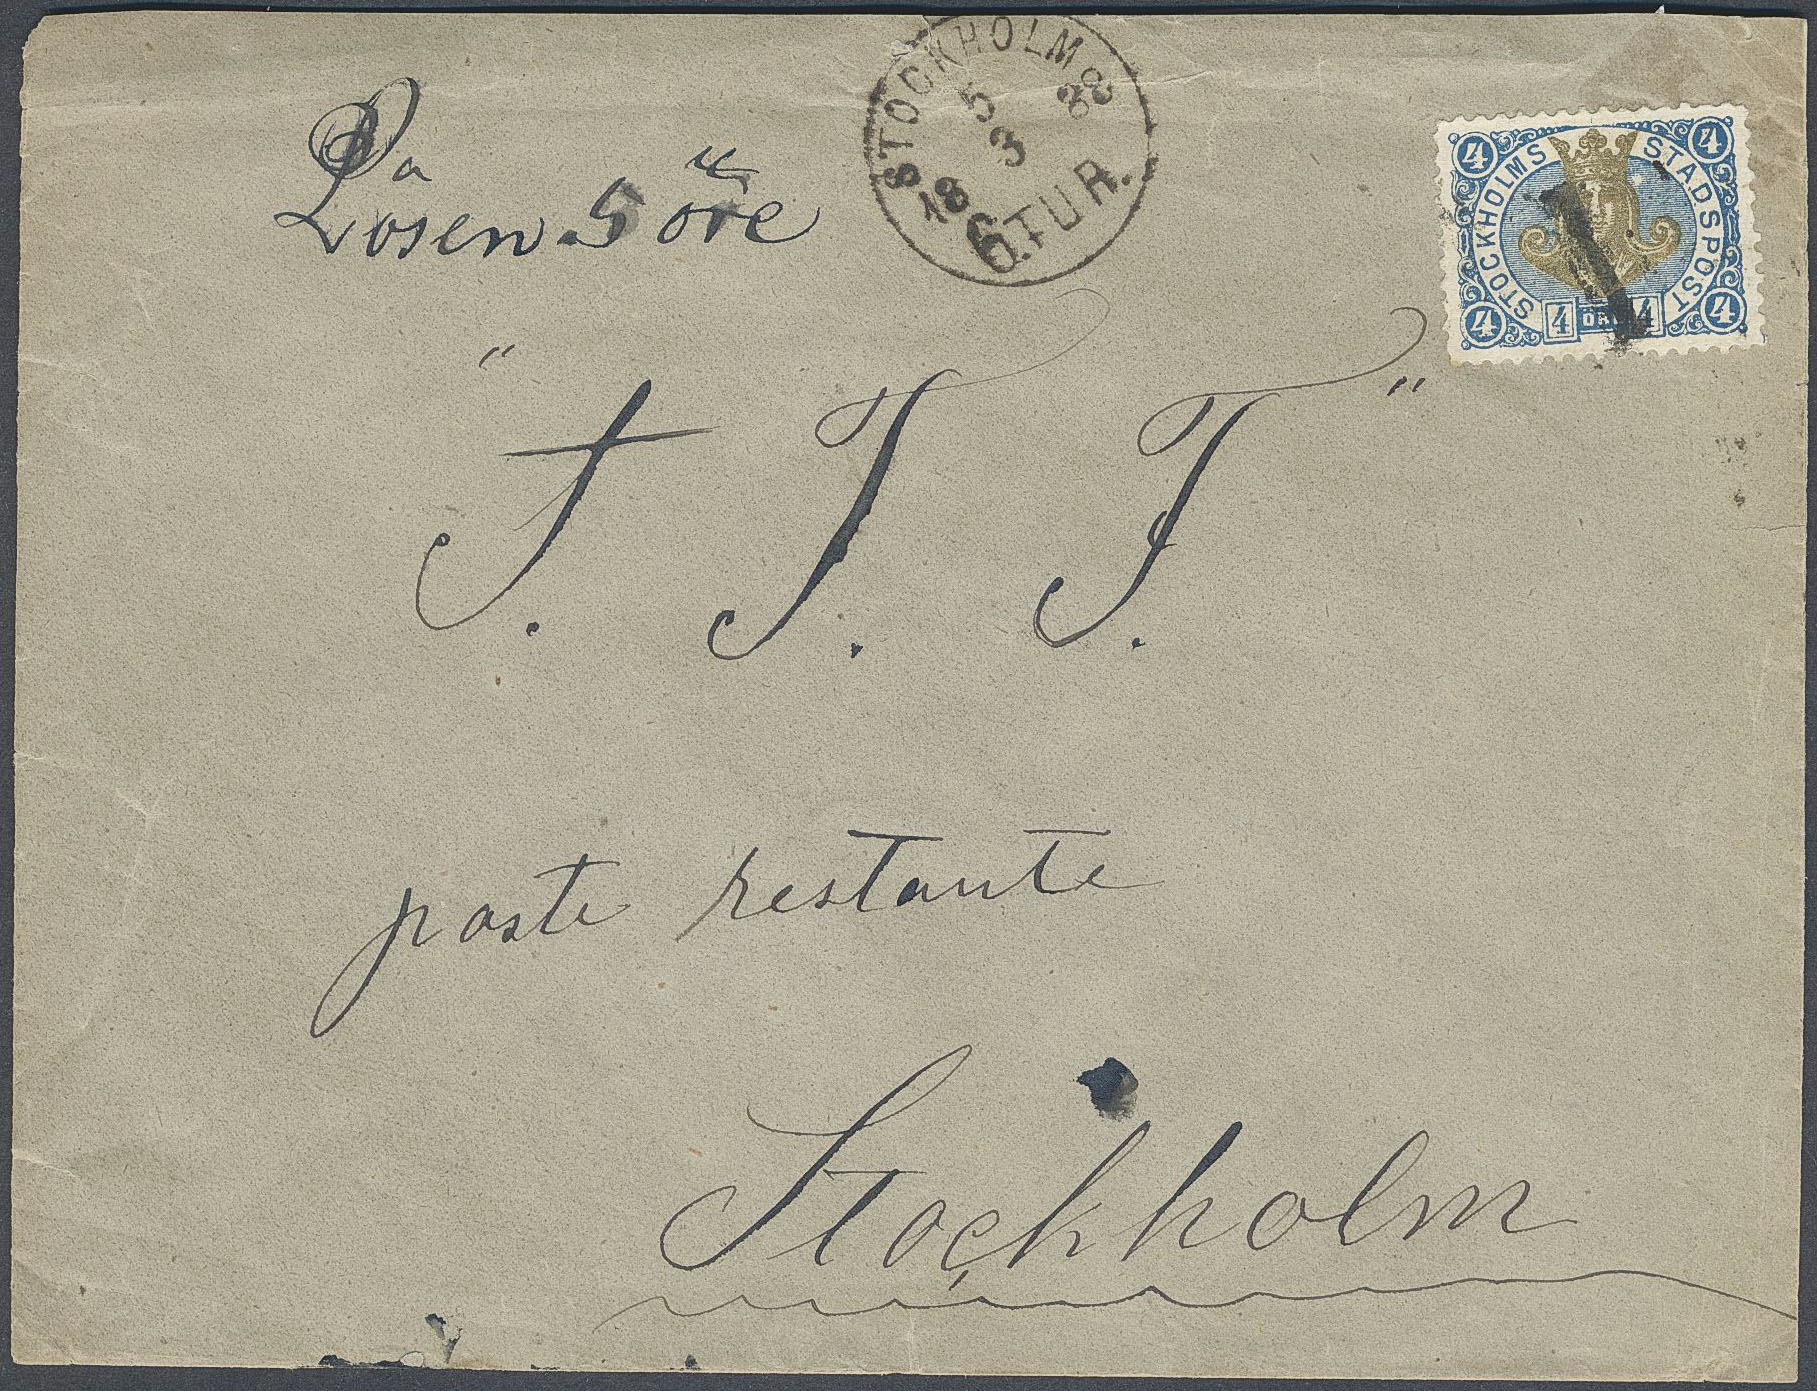 STOCKHOLM
5 3 1888
6.TUR.
Lösen 5 öre
4 4
STOCKHOLMS STADSPOST
4 ÖRE 4
4 4
"T. T. T."
poste restante
Stockholm